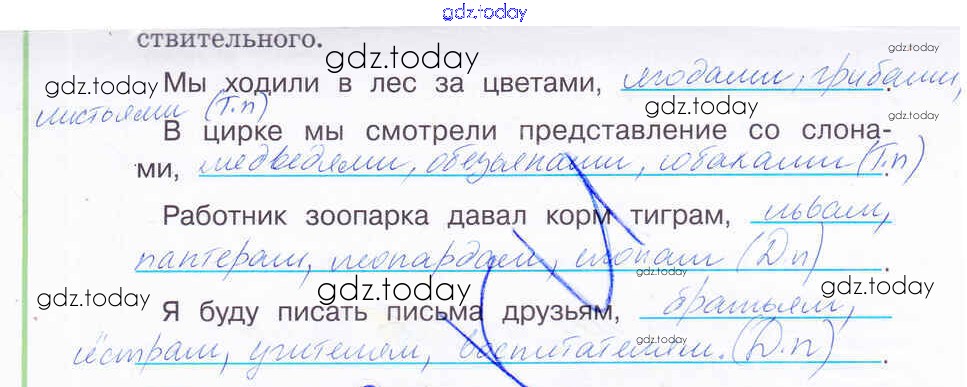 gdz.today
ствительного.
gdz.today
gdz.today
gdz.today
Мы ходили в лес за цветами, ягодами, грибами,
листьями (Т.п)
gdz.today
gdz.today
В цирке мы смотрели представление со слона-
ми, медведями, обезьянами, собаками (Т.п)
Работник зоопарка давал корм тиграм, львам,
gdz.today
gdz.today
пантерам, леопардам, слонам (Д.п)
gdz.today
gdz.today
gdz.today
Я буду писать письма друзьям, братьям,
сёстрам, учителям, воспитателям. (Д.п)
gdz.today